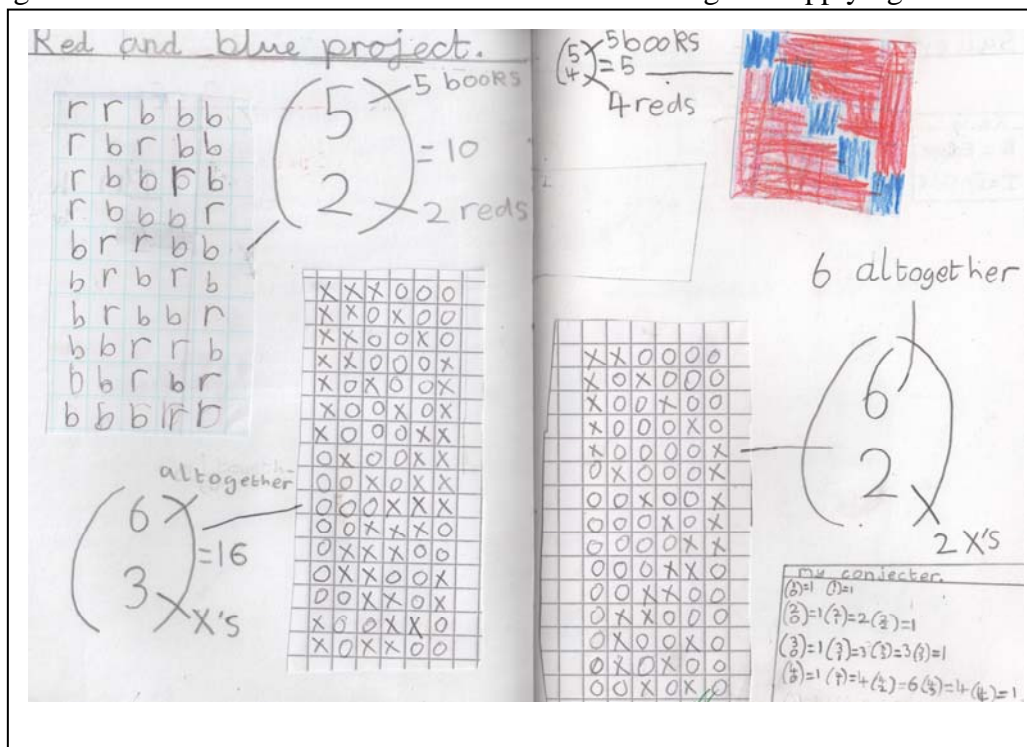 Red and blue project.
r r b b b
r b r b b
r b b r b
r b b b r
b r r b b
b r b r b
b r b b r
b b r r b
b b r b r
b b b r
(5 2) = 10
5 books
2 reds
X X X O O O
X X O X O O
X X O O X O
X X O O O X
X O X O O X
X O O X O X
X O O O X X
O X O O X X
O O X O X X
O O O X X X
O O X X X O
O X X X O O
O X X O O X
O O X X O X
X O O X X O
X O X X O O
altogether
(6 3) = 16
X's
(5 4) = 5
5 books
4 reds
6 altogether
(6 2)
2 X's
X X O O O O
X O X O O O
X O O X O O
X O O O X O
X O O O O X
O X O O O X
O O X O O X
O O O X O X
O O O O X X
O O O X X O
O O X X O O
O X X O O O
O X O O X O
O X O X O O
O O X O X O
my conjecter.
(1 0)=1 (1 1)=1
(2 0)=1 (2 1)=2 (2 2)=1
(3 0)=1 (3 1)=3 (3 2)=3 (3 3)=1
(4 0)=1 (4 1)=4 (4 2)=6 (4 3)=4 (4 4)=1